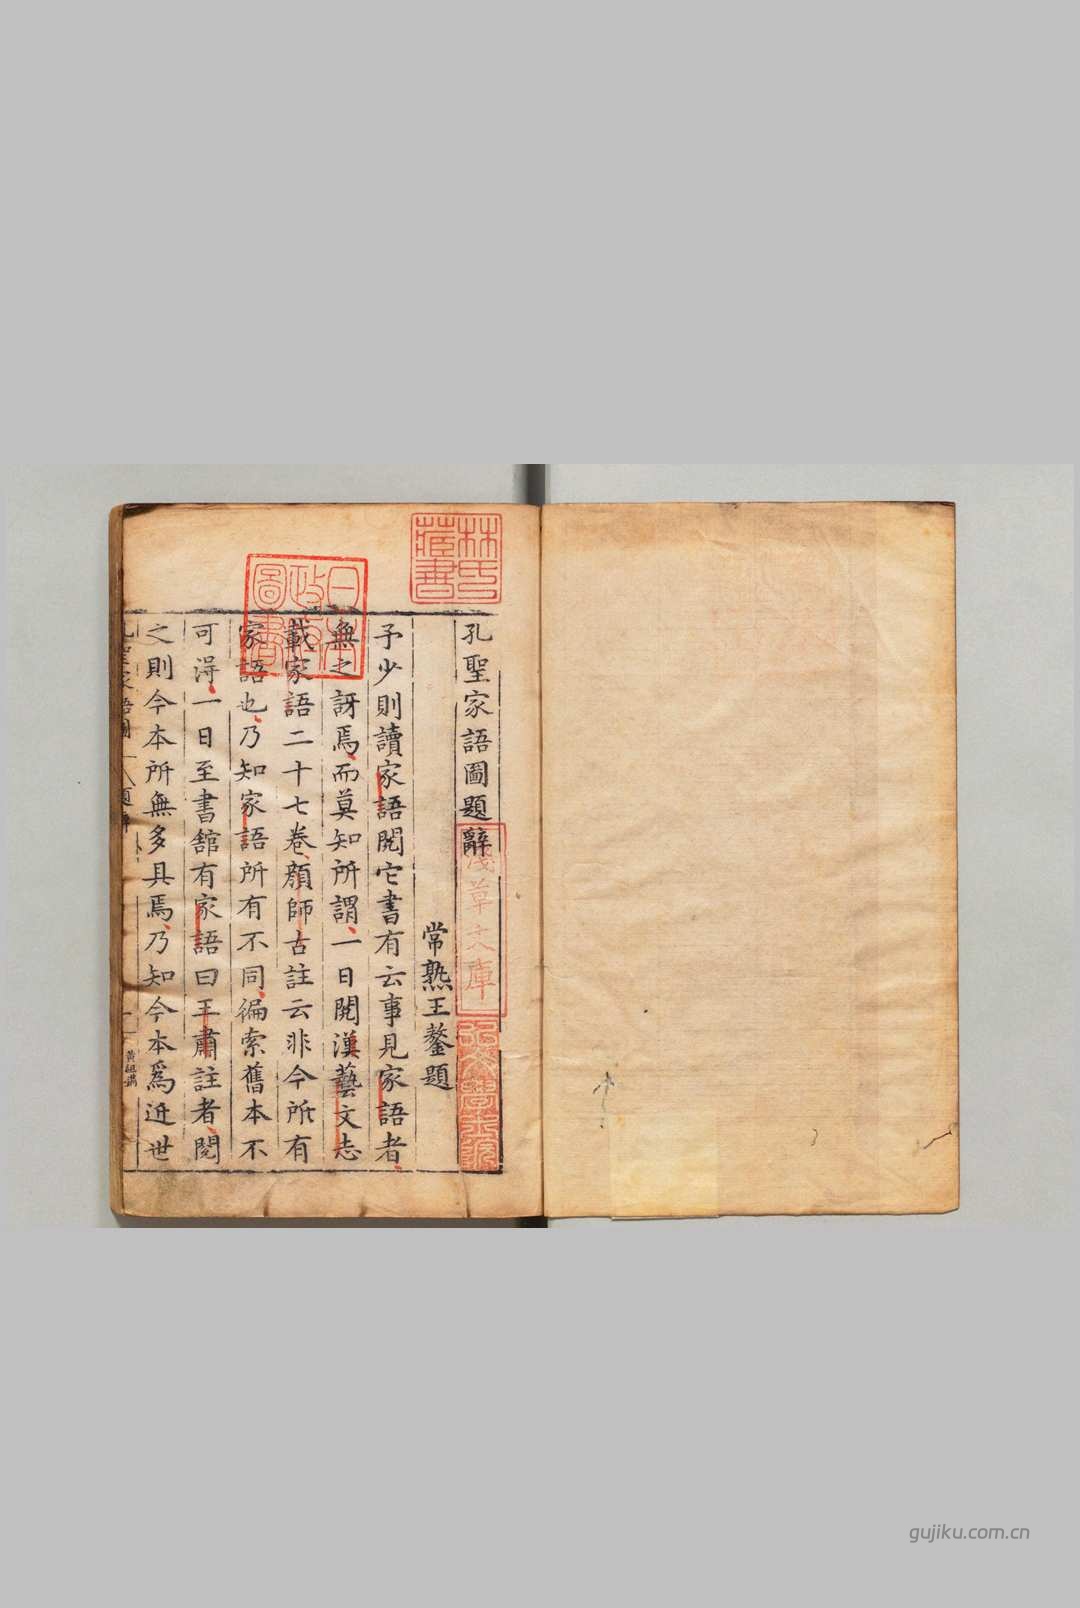 孔聖家語圖題辭
常熟王鏊題
予少則讀家語閱它書有云事見家語者
無之訝焉而莫知所謂一日閱漢藝文志
載家語二十七卷顔師古註云非今所有
家語也乃知家語所有不同徧索舊本不
可得一日至書舘有家語曰王肅註者閱
之則今本所無多具焉乃知今本爲近世
孔聖家語圖
題辭
一
黄組
林氏藏書
日本政府圖書
淺草文庫
gujiku.com.cn